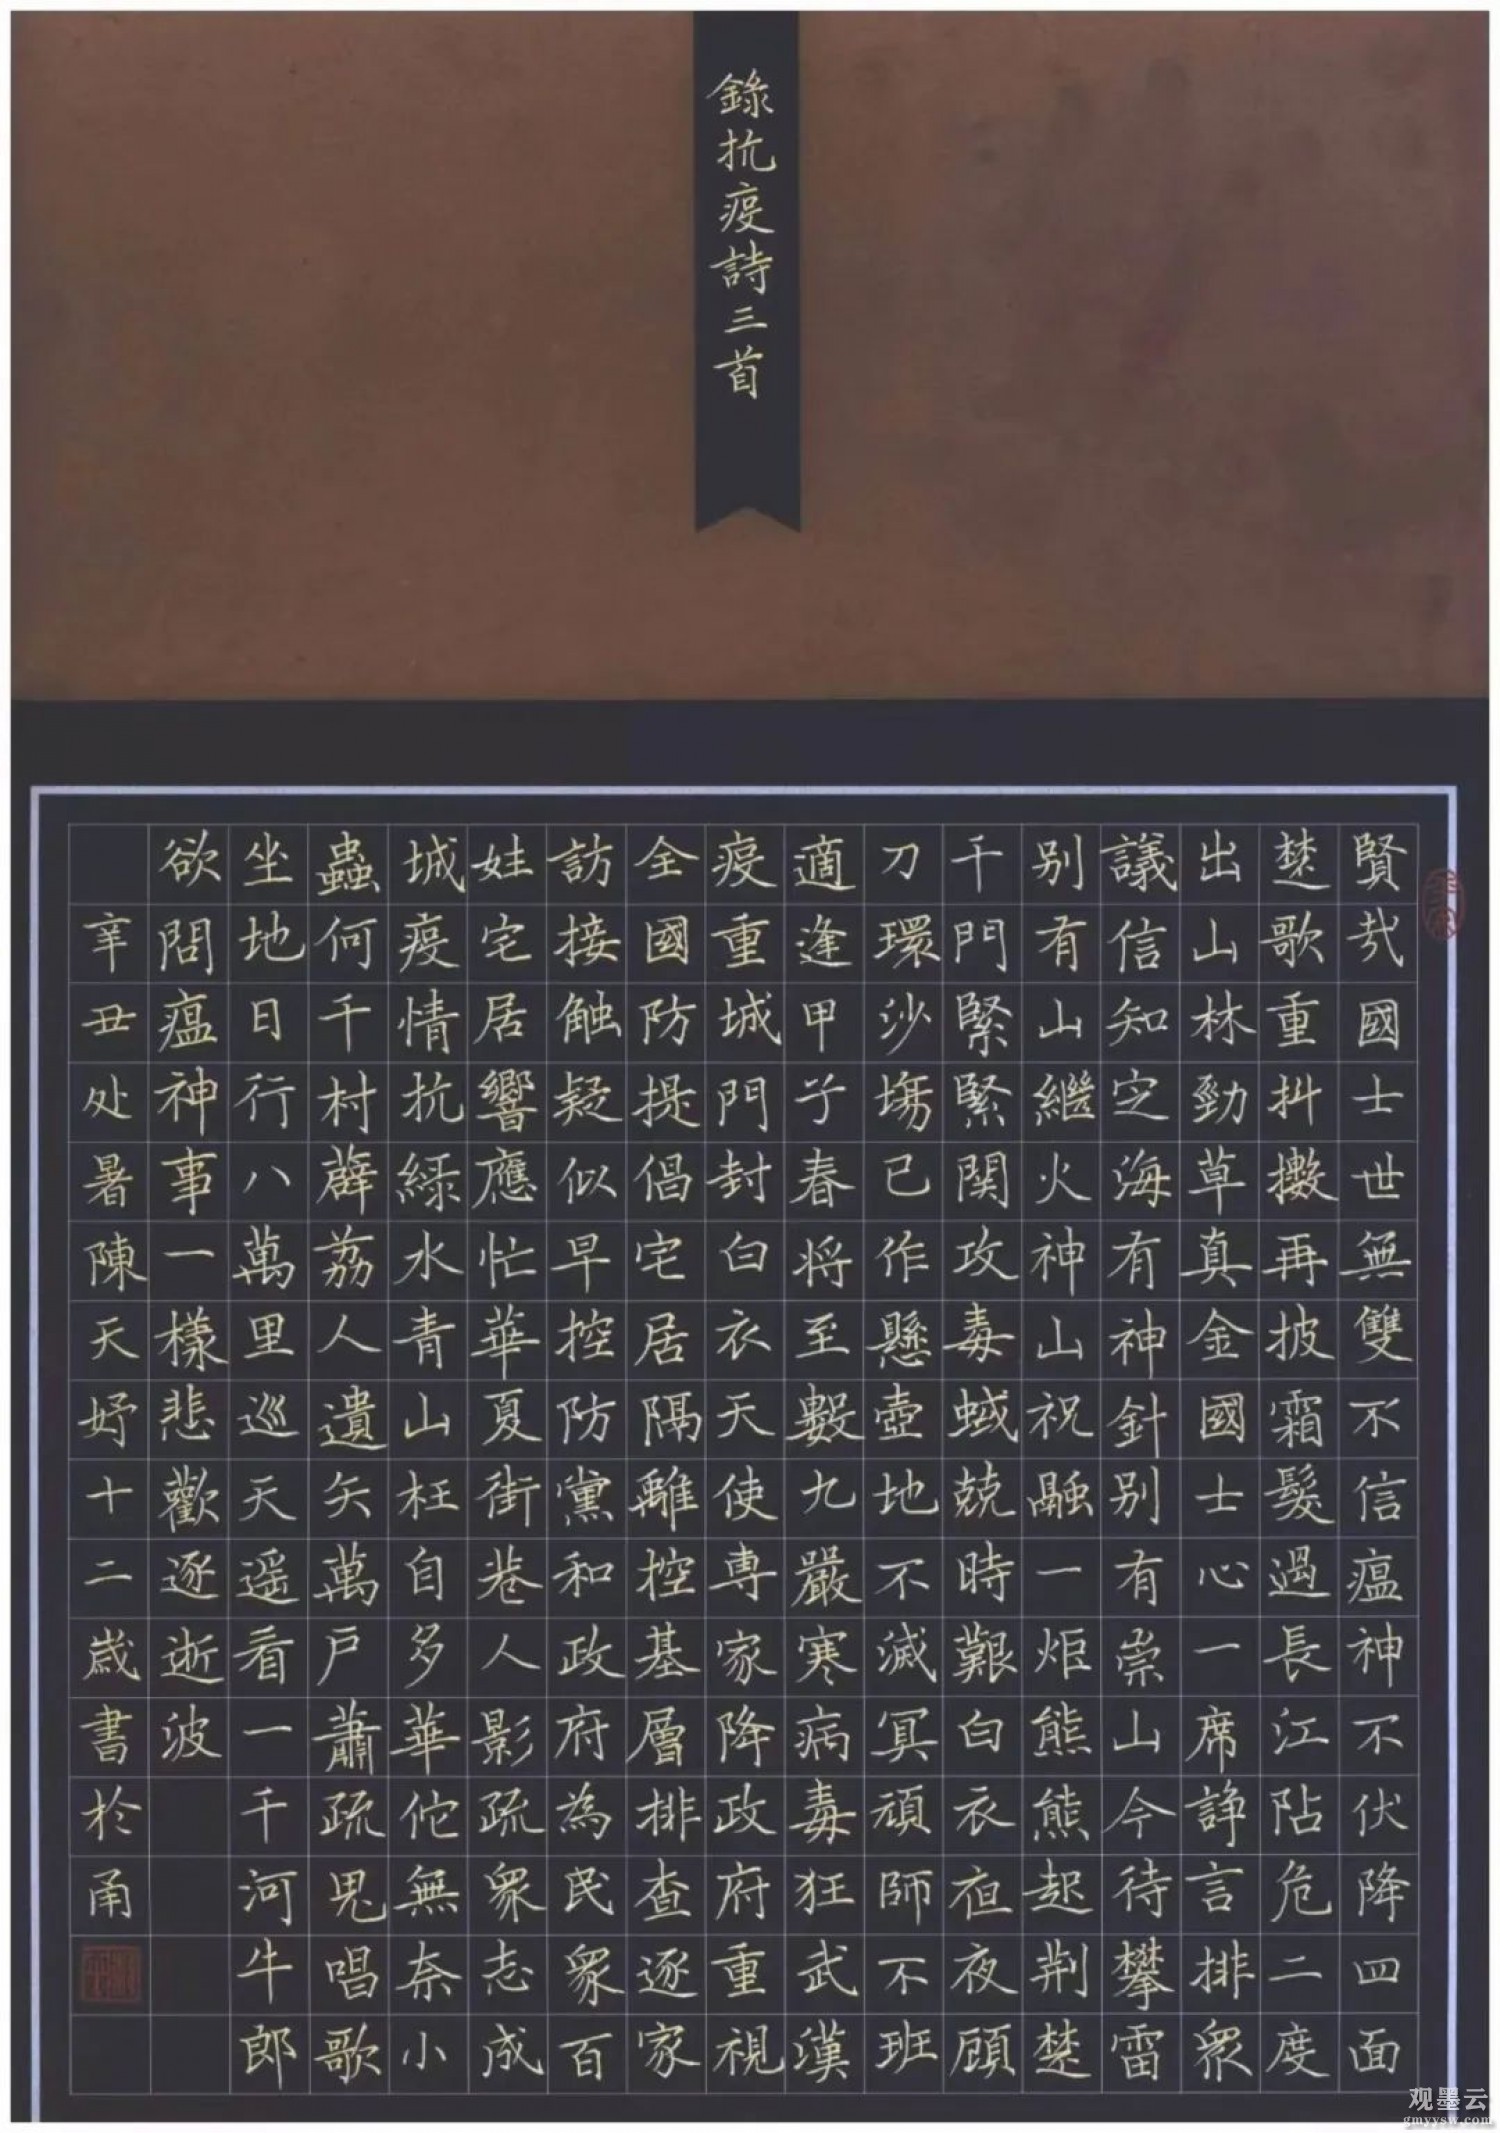 錄抗疫詩三首
賢哉國士世無雙不信瘟神不伏降四面
楚歌重抖擻再披霜髮過長江阽危二度
出山林勁草真金國士心一席諍言排眾
議信知定海有神針別有崇山今待攀雷
别有山繼火神山祝融一炬熊熊起荆楚
千門緊緊関攻毒蜮兢時艱白衣夜顧
刀環沙塲已作懸壺地不滅冥頑師不班
適逢甲子春将至數九嚴寒病毒狂武漢
疫重城門封白衣天使専家降政府重視
全國防提倡宅居隔離控基層排查逐家
訪接触疑似早控防黨和政府為民眾百
姓宅居響應忙華夏街巷人影疏眾志成
城疫情抗綠水青山枉自多華佗無奈小
蟲何千村薜荔人遺矢萬户蕭疏鬼唱歌
坐地日行八萬里巡天遥看一千河牛郎
欲問瘟神事一樣悲歡逐逝波
辛丑处暑陳天妤十二歲書於甬
观墨云
gmyysw.com